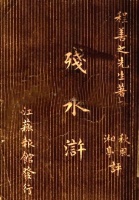 程善之先生著
殘水滸
秋風
湘亭 評
江蘇報館發行